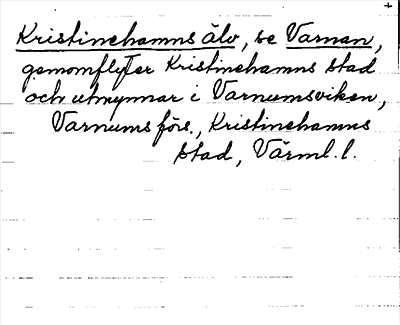 Kristinehamns älv, se Varnan,
genomflyter Kristinehamns stad
och utmynnar i Varnumsviken,
Varnums förs., Kristinehamns
stad, Värml. l.